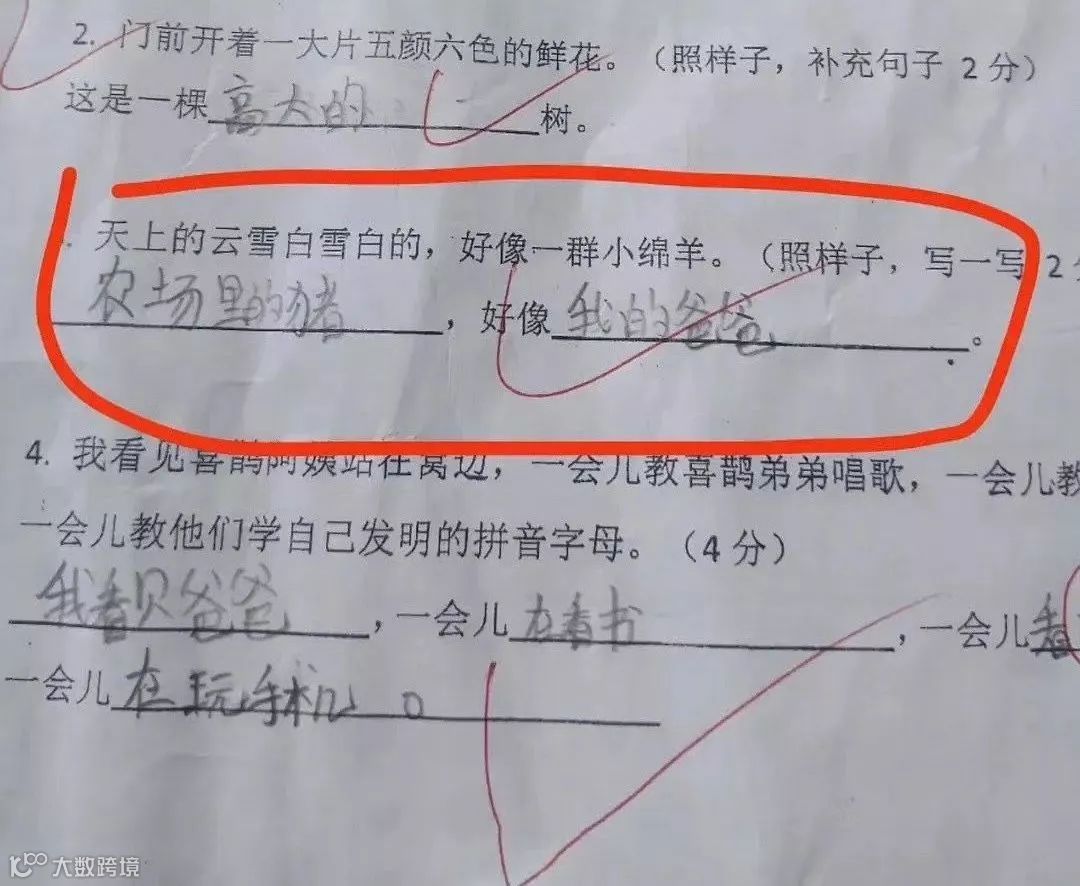 2. 门前开着一大片五颜六色的鲜花。（照样子，补充句子 2分）
这是一棵高大的树。
. 天上的云雪白雪白的，好像一群小绵羊。（照样子，写一写 2
农场里的猪，好像我的爸爸。
4. 我看见喜鹊阿姨站在窝边，一会儿教喜鹊弟弟唱歌，一会儿教
一会儿教他们学自己发明的拼音字母。（4分）
我看贝爸爸，一会儿在看书，一会儿看
一会儿在玩手机。
大数跨境